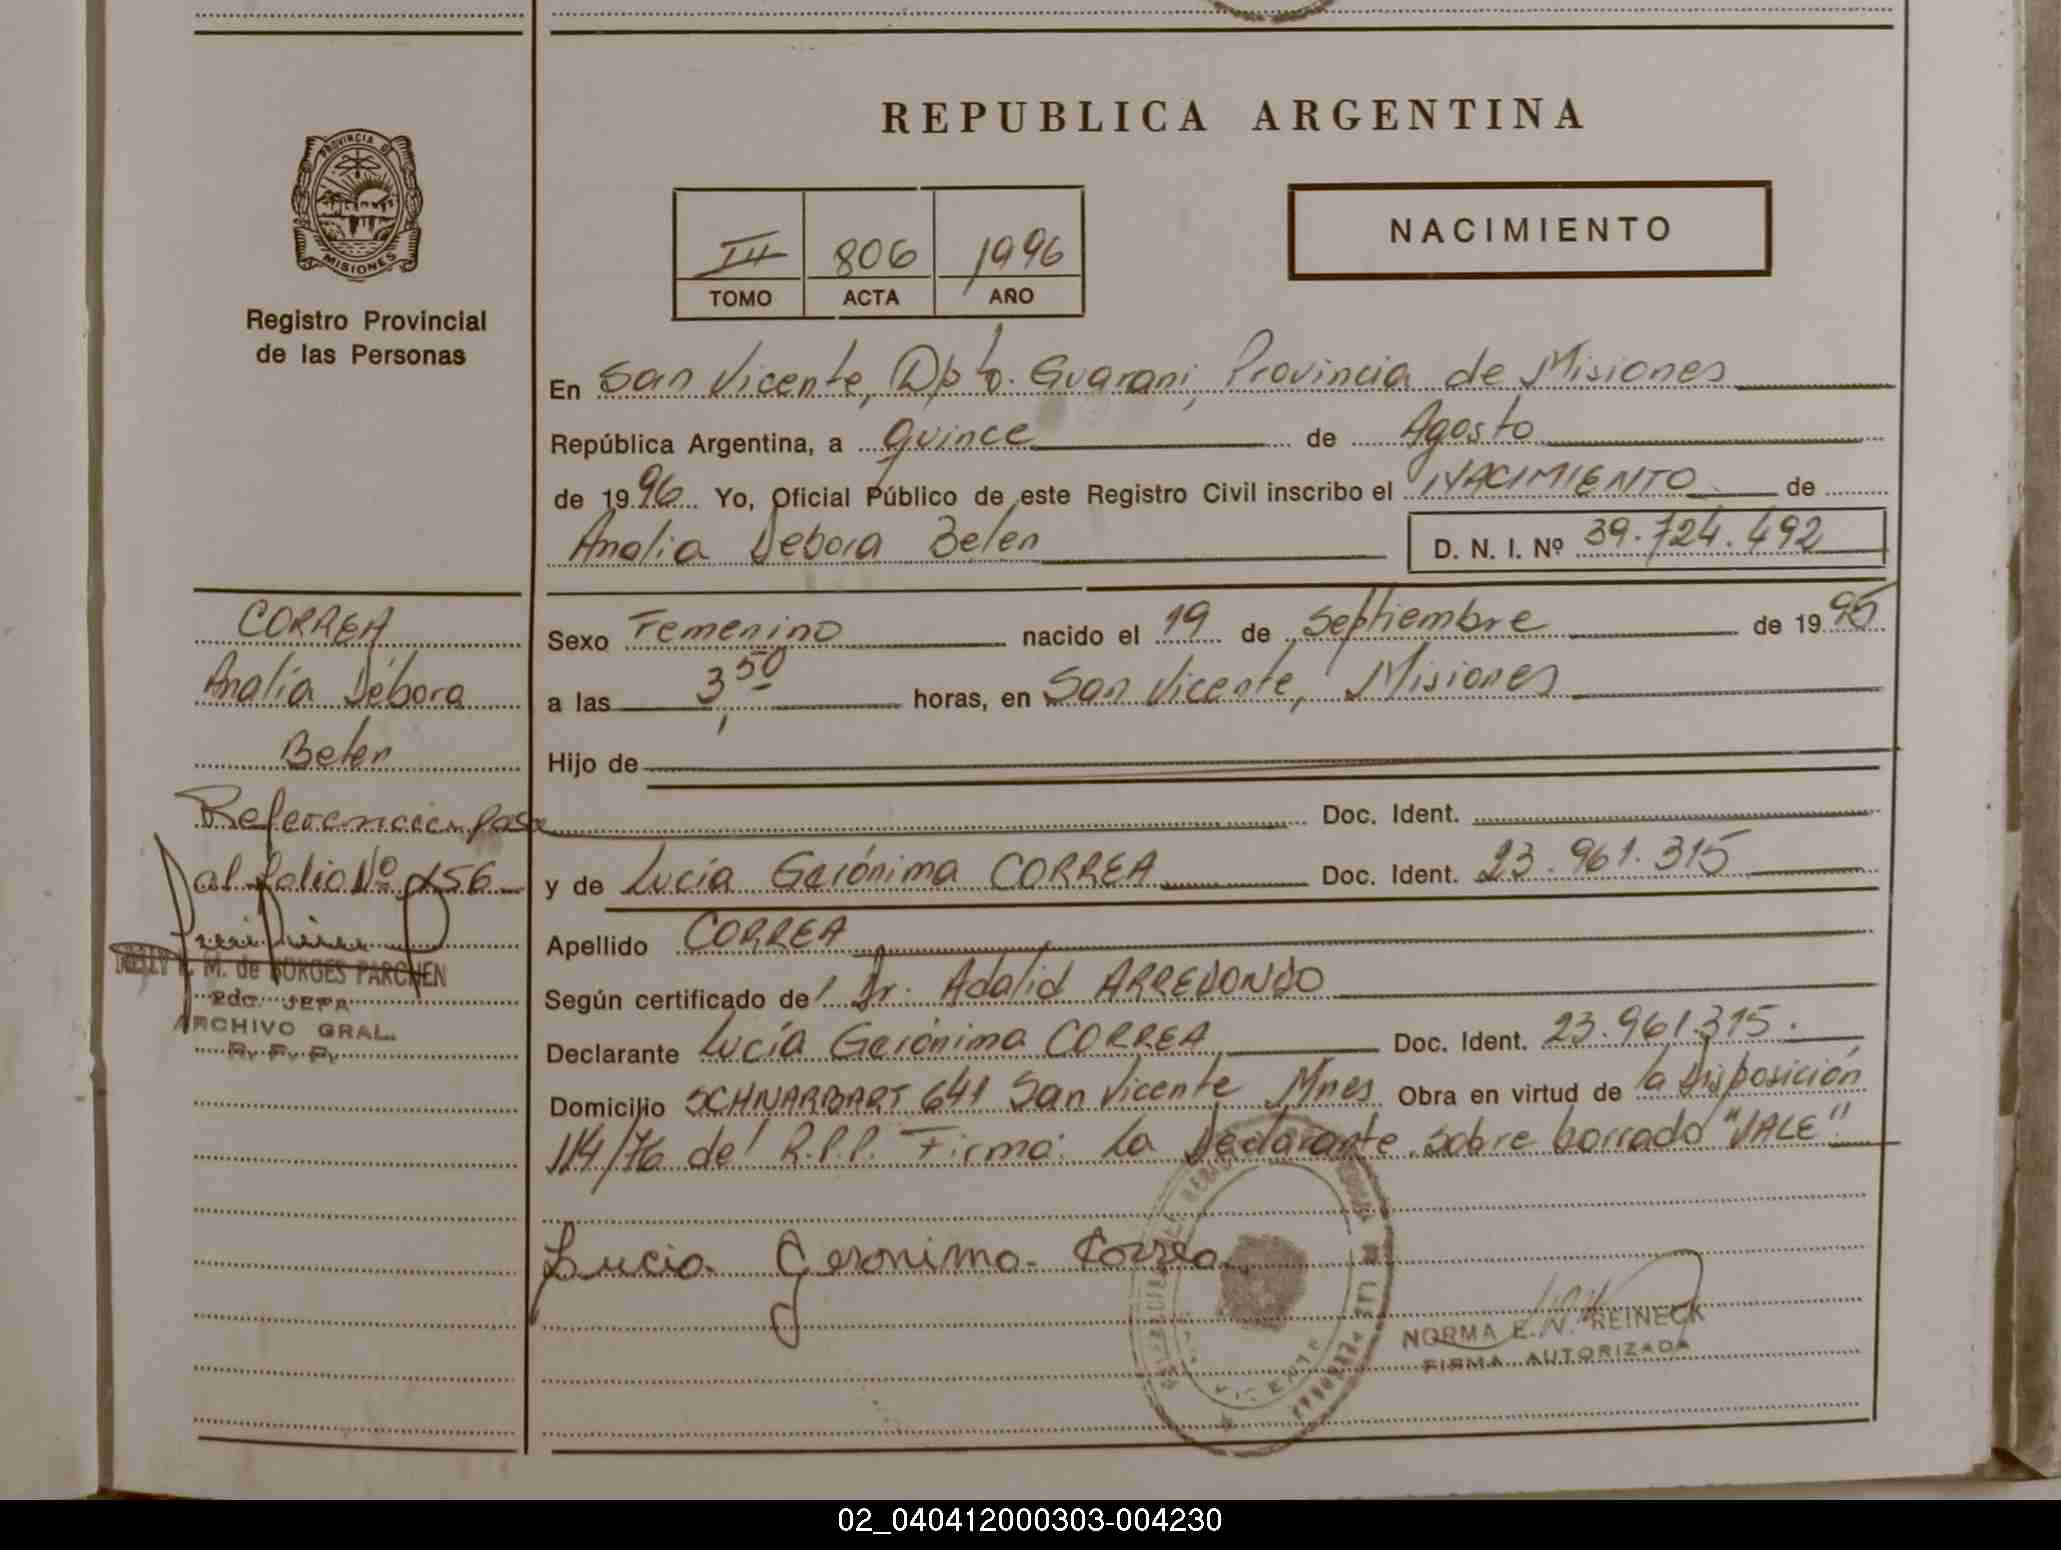 REPUBLICA ARGENTINA
PROVINCIA DE
MISIONES
Registro Provincial
de las Personas
III 806 1996
TOMO ACTA AÑO
NACIMIENTO
En San Vicente, Dpto. Guarani, Provincia de Misiones
República Argentina, a quince de Agosto
de 1996 Yo, Oficial Público de este Registro Civil inscribo el NACIMIENTO de
Analia Debora Belen D. N. I. Nº 39.724.492
CORREA
Analía Débora
Belen
Referencia pasa
al folio Nº 156
M. de BORGES PARCHEN
2do. JEFA
ARCHIVO GRAL.
R. P. P.
Sexo Femenino nacido el 19 de Septiembre de 1995
a las 3,50 horas, en San Vicente, Misiones
Hijo de
Doc. Ident.
y de Lucía Gerónima CORREA Doc. Ident. 23.961.315
Apellido CORREA
Según certificado del Dr. Adalid ARREDONDO
Declarante Lucía Gerónima CORREA Doc. Ident. 23.961.315.
Domicilio SCHNARBART 641 San Vicente Mnes Obra en virtud de la Disposición
114/76 del R.P.P. Firma: La Declarante. sobre borrado "VALE"
Lucia Geronima Correa
NORMA E. N. REINECK
FIRMA AUTORIZADA
02_040412000303-004230